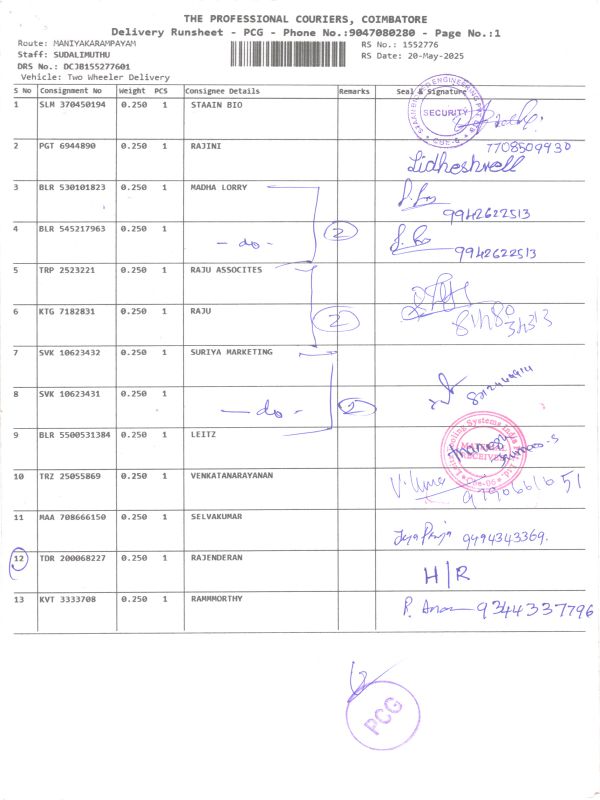 THE PROFESSIONAL COURIERS, COIMBATORE
Delivery Runsheet - PCG - Phone No.:9047080280 - Page No.:1
Route: MANIYAKARAMPAYAM
RS No.: 1552776
Staff: SUDALIMUTHU
RS Date: 20-May-2025
DRS No.: DCJB155277601
Vehicle: Two Wheeler Delivery
S No Consignment No Weight PCS Consignee Details Remarks Seal & Signature
1 SLM 370450194 0.250 1 STAAIN BIO
SECURITY
2 PGT 6944890 0.250 1 RAJINI 7708509930
Lidheshwell
3 BLR 530101823 0.250 1 MADHA LORRY
9942622513
4 BLR 545217963 0.250 1 - do - 2
9942622513
5 TRP 2523221 0.250 1 RAJU ASSOCITES
6 KTG 7182831 0.250 1 RAJU 2
7 SVK 10623432 0.250 1 SURIYA MARKETING
8 SVK 10623431 0.250 1 - do - 2
9 BLR 5500531384 0.250 1 LEITZ
10 TRZ 25055869 0.250 1 VENKATANARAYANAN
V. Uma
11 MAA 708666150 0.250 1 SELVAKUMAR
9494343369.
12 TDR 200068227 0.250 1 RAJENDERAN
H/R
13 KVT 3333708 0.250 1 RAMMMORTHY
9344337796
PCG